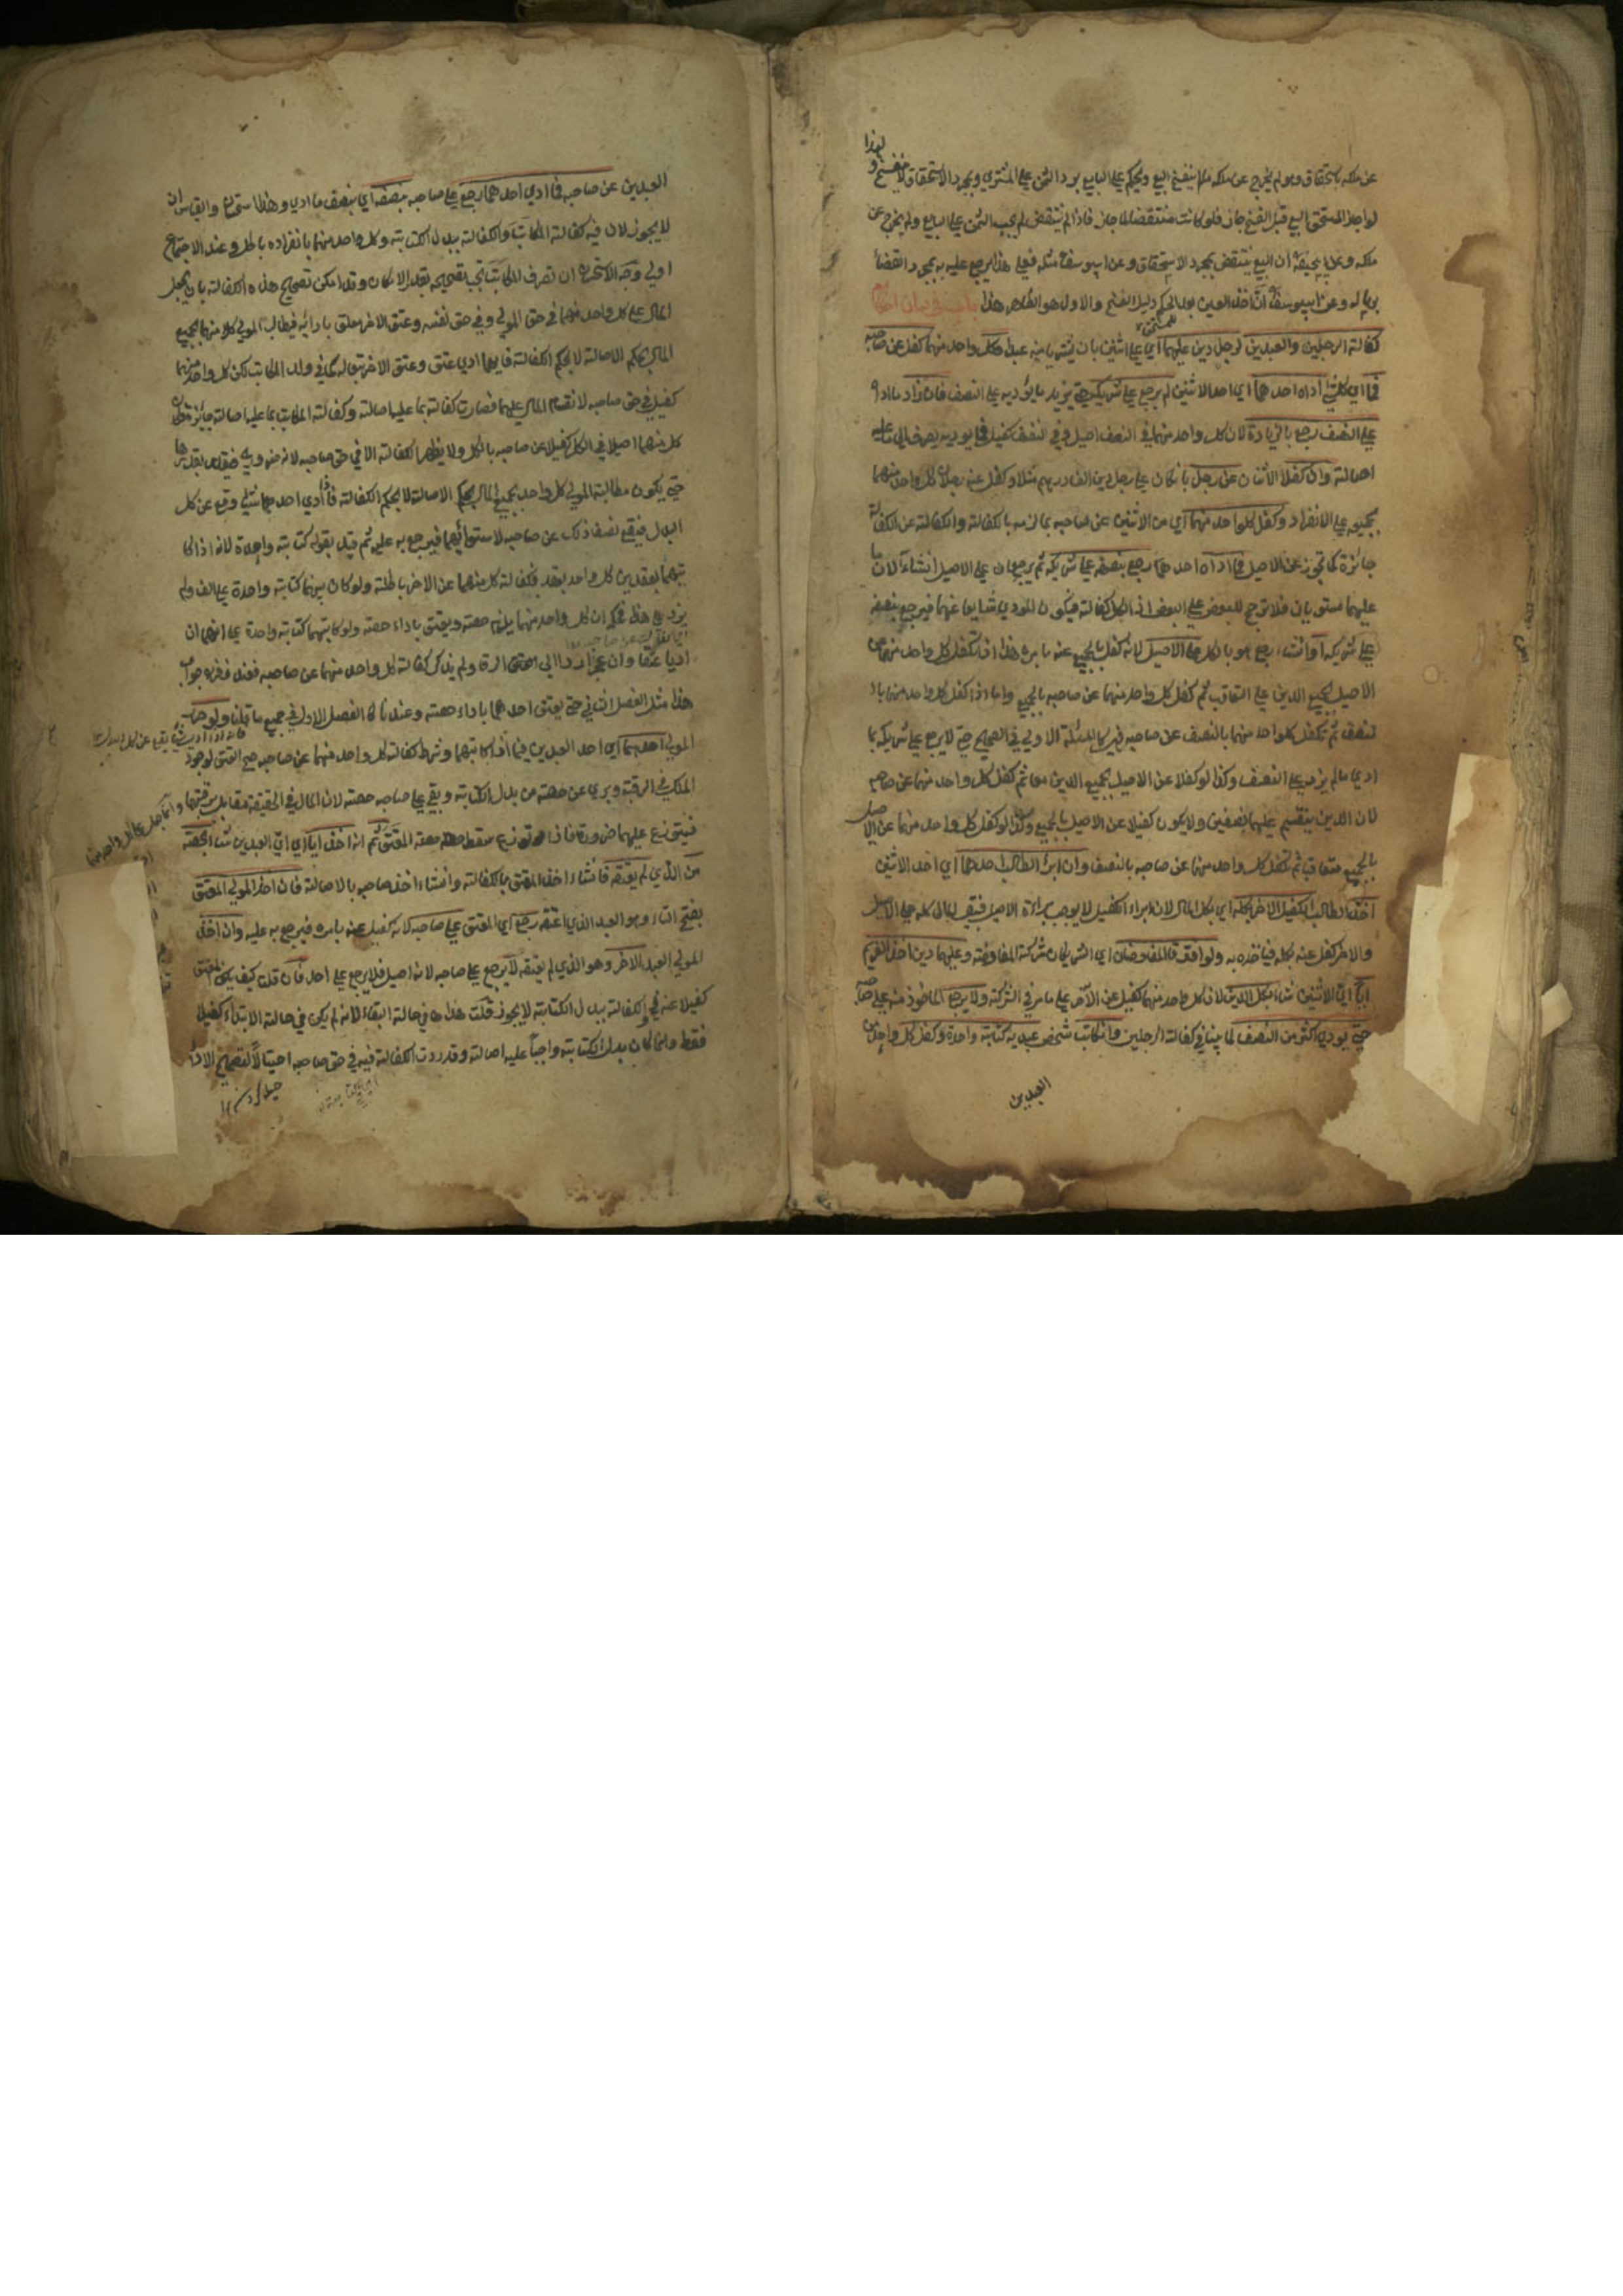 عن ملكه بالاستحقاق وهو لم يخرج عن ملكه ما لم ينفسخ البيع ويحكم على البايع برد الثمن على المشتري وبمجرد الاستحقاق لا ينفسخ ولهذا
لو اجاز المستحق البيع قبل الفسخ جاز فلو كانت منتقضا لما جاز فاذا لم ينتقض لم يجب الثمن على البايع ولم يخرج عن
ملكه وعن ابي حنيفة ان البيع ينتقض بمجرد الاستحقاق وعن ابي يوسف مثله فعلى هذا يرجع عليه بمجرد القضاء
وعن ابي يوسف ان اخذ العين بعد الحكم دليل الفسخ والاول هو الظاهر هذا باب في بيان احكام
كفالة الرجلين والعبدين لرجل دين عليهما اي على اثنين بان يشتريا منه عبدا وكفل كل واحد منهما كفل عن صاحبه
فما اي كل شيء اداه احدهما اي احد الاثنين لم يرجع على شريكه حتى يزيد ما يؤديه على النصف فان زاد ما اداه
على النصف رجع بالزيادة لان كل واحد منهما في النصف اصيل وفي النصف كفيل فما يوديه يصرف الى ما عليه
اصالة وان كفلا الاثنان عن رجل بان كان على رجل دين الف درهم مثلا وكفل عنه رجلان كل واحد منهما
بجميعه على الانفراد وكفل كل واحد منهما اي من الاثنين عن صاحبه بما لزمه بالكفالة والكفالة عن الكفالة
جائزة كما تجوز عن الاصيل فما اداه احدهما رجع بنصفه على شريكه ثم يرجعان على الاصيل ان شاءا لان ما
عليهما مستويان فلا ترجيح للبعض على البعض اذ الكل كفالة فيكون المودي شايعا عنهما فيرجع بنصفه
على شريكه او ان شاء رجع هو بالكل على الاصيل لانه كفل بالجميع عنه بامره هذا اذا كفل كل واحد منهما عن
الاصيل بجميع الدين على التعاقب ثم كفل كل واحد منهما عن صاحبه بالجميع واما اذا كفل كل واحد منهما بال
نصف ثم تكفل كل واحد منهما بالنصف عن صاحبه فهي كالمسئلة الاولى في الصحيح حتى لا يرجع على شريكه بما
ادى ما لم يزد على النصف وكذا لو كفلا عن الاصيل بجميع الدين معا ثم كفل كل واحد منهما عن صاحبه
لان الدين ينقسم عليهما نصفين ولا يكون كفيلا عن الاصيل بالجميع وكذا لو كفل كل واحد منهما عن الاصيل
بالجميع متعاقبا ثم كفل كل واحد منهما عن صاحبه بالنصف وان ابرأ الطالب احدهما اي احد الاثنين
اخذ الطالب الكفيل الاخر بكله اي بكل المال لان ابراء الكفيل لا يوجب براءة الاصيل فبقي المال كله على الاصيل
والاخر كفل عنه بكله فياخذه به ولو افترق المفاوضان اي الشريكان شركة المفاوضة وعليهما دين اخذ الغريم
ايا اي الاثنين شاء بكل الدين لان كل واحد منهما كفيل عن الآخر على ما مر في الشركة ولا يرجع الماخوذ منه على صاحبه
حتى يودي اكثر من النصف لما بينا في كفالة الرجلين وان كاتب شخص عبديه كتابة واحدة وكفل كل واحد من
العبدين
العبدين عن صاحبه فما ادى احدهما رجع على صاحبه بنصفه اي بنصف ما ادى وهذا استحسان والقياس ان
لا يجوز لان فيه كفالة المكاتب والكفالة ببدل الكتابة وكل واحد منهما بانفراده باطل وعند الاجتماع
اولى وجه الاستحسان ان تصرف المكاتب يجب تصحيحه بقدر الامكان وقد امكن تصحيح هذه الكفالة بان يجعل
المال على كل واحد منهما في حق المولى وفي حق نفسه وعتق الاخر معلق بادائه فيطالب المولى كلا منهما بجميع
المال بحكم الاصالة لا بحكم الكفالة فايهما ادى عتق وعتق الاخر تبعا له كما في ولد المكاتب لكن كل واحد منهما
كفيل في حق صاحبه لانقسام المال عليهما فصارت كفالة بما عليه اصالة وكفالة المكاتب بما عليه اصالة جائزة فكان
كل منهما اصيلا في الكل كفيلا عن صاحبه بالكل ولا يظهر الكفالة الا في حق صاحبه لانه ضروري فيتقدر بقدرها
حتى يكون مطالبة المولى كل واحد بجميع المال بحكم الاصالة لا بحكم الكفالة فاذا ادى احدهما شيئا وقع عن كل
البدل فيقع نصف ذلك عن صاحبه لاستوائهما فيرجع به عليه ثم قيد بقوله كتابة واحدة لانه اذا كا
تبهما بعقدين كل واحد بعقد فكفالة كل منهما عن الاخر باطلة ولو كان بينهما كتابة واحدة على الف ولم
يزد على هذا فحكمه ان كل واحد منهما يلزمه حصته ويعتق باداء حصته ولو كاتبهما كتابة واحدة على انهما ان
اديا عتقا وان عجزا ردا الى الرق ولم يذكر كفالة كل واحد منهما عن صاحبه فعند زفر جواب
هذا مثل الفصل الثاني حتى يعتق احدهما باداء حصته وعندنا كالفصل الاول في جميع ما قلنا ولو حرر
المولى احدهما اي احد العبدين فيما اذا كاتبهما وشرط كفالة كل واحد منهما عن صاحبه صح العتق لوجود
الملك في الرقبة وبرئ عن حصته من بدل الكتابة وبقي على صاحبه حصته لان المال في الحقيقة مقابل برقبتهما وانما جعل على كل واحد منهما
فيتوزع عليهما ضرورة فاذا توزع سقط حصة المعتق ثم انه اخذ ايا اي اي العبدين شاء بحصة
من الذي لم يعتقه فان شاء اخذ المعتق بالكفالة وان شاء اخذ صاحبه بالاصالة فان اخذ المولى المعتق
بفتح التاء وهو العبد الذي اعتقه رجع اي المعتق على صاحبه لانه كفيل عنه بامره فيرجع به عليه وان اخذ
المولى العبد الاخر وهو الذي لم يعتقه لا يرجع على صاحبه لانه اصيل فلا يرجع على احد فان قلت كيف يكون المعتق
كفيلا عنه والكفالة ببدل الكتابة لا يجوز قلت هذا في حالة البقاء لانه لم يكن في حالة الابتداء كفيلا
فقط وانما كان بدل الكتابة واجبا عليه اصالة وقدرت الكفالة فيه في حق صاحبه احتيالا لتصحيح الاداء